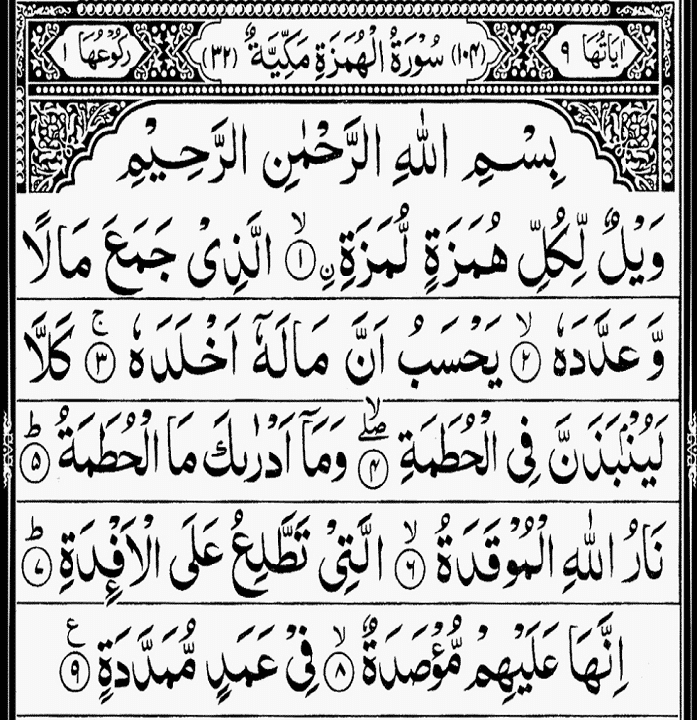 اٰيَاتُهَا ٩ (١٠٤) سُوْرَةُ الْهُمَزَةِ مَكِّيَّةٌ (٣٢) رُكُوْعُهَا ١
بِسْمِ اللّٰهِ الرَّحْمٰنِ الرَّحِيْمِ
وَيْلٌ لِّكُلِّ هُمَزَةٍ لُّمَزَةِ ۣنِ ۙ﴿١﴾ الَّذِىْ جَمَعَ مَالًا
وَّ عَدَّدَهٗ ۙ﴿٢﴾ يَحْسَبُ اَنَّ مَالَهٗۤ اَخْلَدَهٗ ۚ﴿٣﴾ كَلَّا
لَيُنْۢبَذَنَّ فِى الْحُطَمَةِ ۖۙ﴿٤﴾ وَمَاۤ اَدْرٰىكَ مَا الْحُطَمَةُ ؕ﴿٥﴾
نَارُ اللّٰهِ الْمُوْقَدَةُ ۙ﴿٦﴾ الَّتِىْ تَطَّلِعُ عَلَى الْاَفْـِٕدَةِ ؕ﴿٧﴾
اِنَّهَا عَلَيْهِمْ مُّؤْصَدَةٌ ۙ﴿٨﴾ فِىْ عَمَدٍ مُّمَدَّدَةٍ ࣖ﴿٩﴾